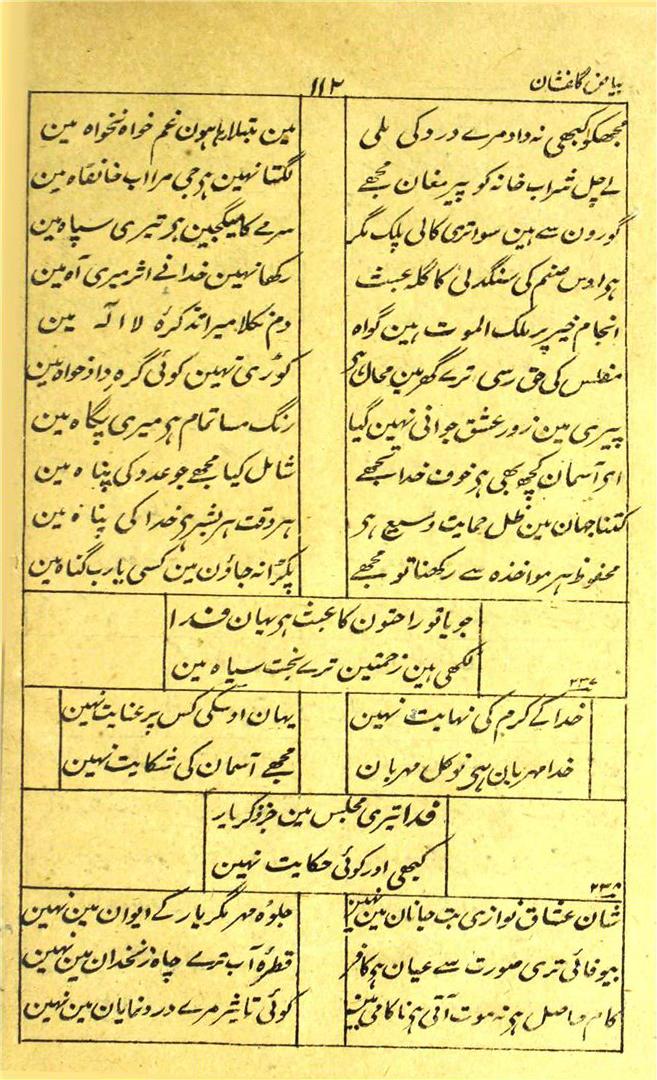 بیاض گلفشان
۱۱۲
مجھکو کبھی نہ داد مرے درد کی ملی
مین مبتلا رہا ہون غم خواہ نخواہ مین
لے چل شراب خانہ کو پیر مغان مجھے
لگتا نہین ہی جی مرا اب خانقاہ مین
گورون سے ہین سوا تری کالی پلک مگر
سرمے کا میگجین ہی تیری سپاہ مین
ہوا دس صنم کی سنگدلی کا گلہ عبث
رکھا نہین خدا نے اثر میری آہ مین
انجام خیر پر ملک الموت ہین گواہ
دم نکلا میرا تذکرۂ لا الہ مین
مفلس کی حق رسی ترے گھر مین محال ہی
کوڑی نہین کوئی گرہ داد خواہ مین
پیری مین زور عشق جوانی نہین گیا
رنگ مسا تمام ہی میری پگاہ مین
ای آسمان کچھ بھی ہی خوف خدا تجھے
شامل کیا مجھے جو عدو کی پناہ مین
کتنا جہان مین ظل حمایت وسیع ہی
ہر وقت ہر بشر ہی خدا کی پناہ مین
محفوظ ہر مواخذہ سے رکھنا تو مجھے
پکڑا نہ جاؤن مین کسی یارب گناہ مین
جویا تو راحتون کا عبث ہی یہان فدا
لکھی ہین زحمتین ترے بخت سیاہ مین
۲۳۷
خدا کے کرم کی نہایت نہین
یہان اوسکی کس پر عنایت نہین
خدا مہربان ہی تو کل مہربان
مجھے آسمان کی شکایت نہین
فدا تیری مجلس مین جز ذکر یار
کبھی اور کوئی حکایت نہین
۲۳۸
شان عشاق نوازی بت جانان مین نہین
جلوۂ مہر مگر یار کے ایوان مین نہین
بیوفائی تری صورت سے عیان ہی کافر
قطرۂ آب ترے چاہ زنخدان مین نہین
کام حاصل ہی نہ موت آتی ہی ناکامی مین
کوئی تاثیر مرے درد نمایان مین نہین